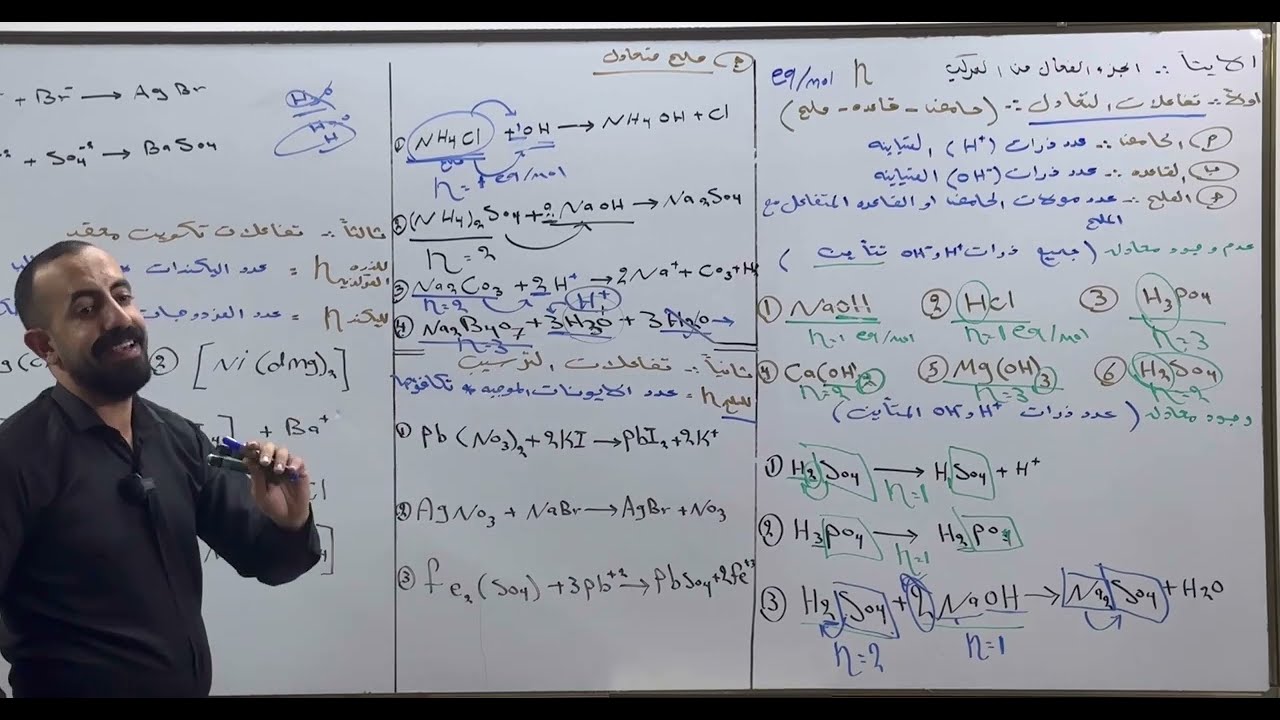 الايتا :. الجزء الفعال من المركب n eq/mol
اولاً :. تفاعلات التعادل :. (حامض - قاعده - ملح)
الحامض :. عدد ذرات (H+) المتاينه
القاعده :. عدد ذرات (OH-) المتاينه
الملح :. عدد مولات الحامض او القاعده المتفاعل مع
الملح
عدم وجود معادله (جميع ذرات H+ و OH- تتأين)
① NaOH ② HCl ③ H3PO4
n=1 eq/mol n=1 eq/mol n=3
④ Ca(OH)2 ⑤ Mg(OH)3 ⑥ H2SO4
n=2 n=3 n=2
وجود معادله (عدد ذرات H+ و OH- المتأين)
① H2SO4 → HSO4 + H+
n=1
② H3PO4 → H2PO4
n=1
③ H2SO4 + 2NaOH → Na2SO4 + H2O
n=2 n=1
ملح متعادل
① NH4Cl + 1OH → NH4OH + Cl
ملح
n=1 eq/mol
② (NH4)2SO4 + 2NaOH → Na2SO4
n=2
③ Na2CO3 + 2H+ → 2Na+ + CO3 + H2
n=2 H+
④ Na2B4O7 + 3H2O + 3H2O →
n=3
ثانياً :. تفاعلات الترسيب
للملح n = عدد الايونات الموجبه * تكافؤها
① Pb(NO3)2 + 2KI → PbI2 + 2K+
② AgNO3 + NaBr → AgBr + NO3
③ Fe2(SO4) + 3Pb+2 → PbSO4 + 2Fe+3
+ Br- → AgBr
+ SO4-2 → BaSO4
ثالثاً :. تفاعلات تكوين معقد
للذره n = عدد اليكندات
لليكند n = عدد المزدوجات
② [Ni(dmg)2]
+ Ba+